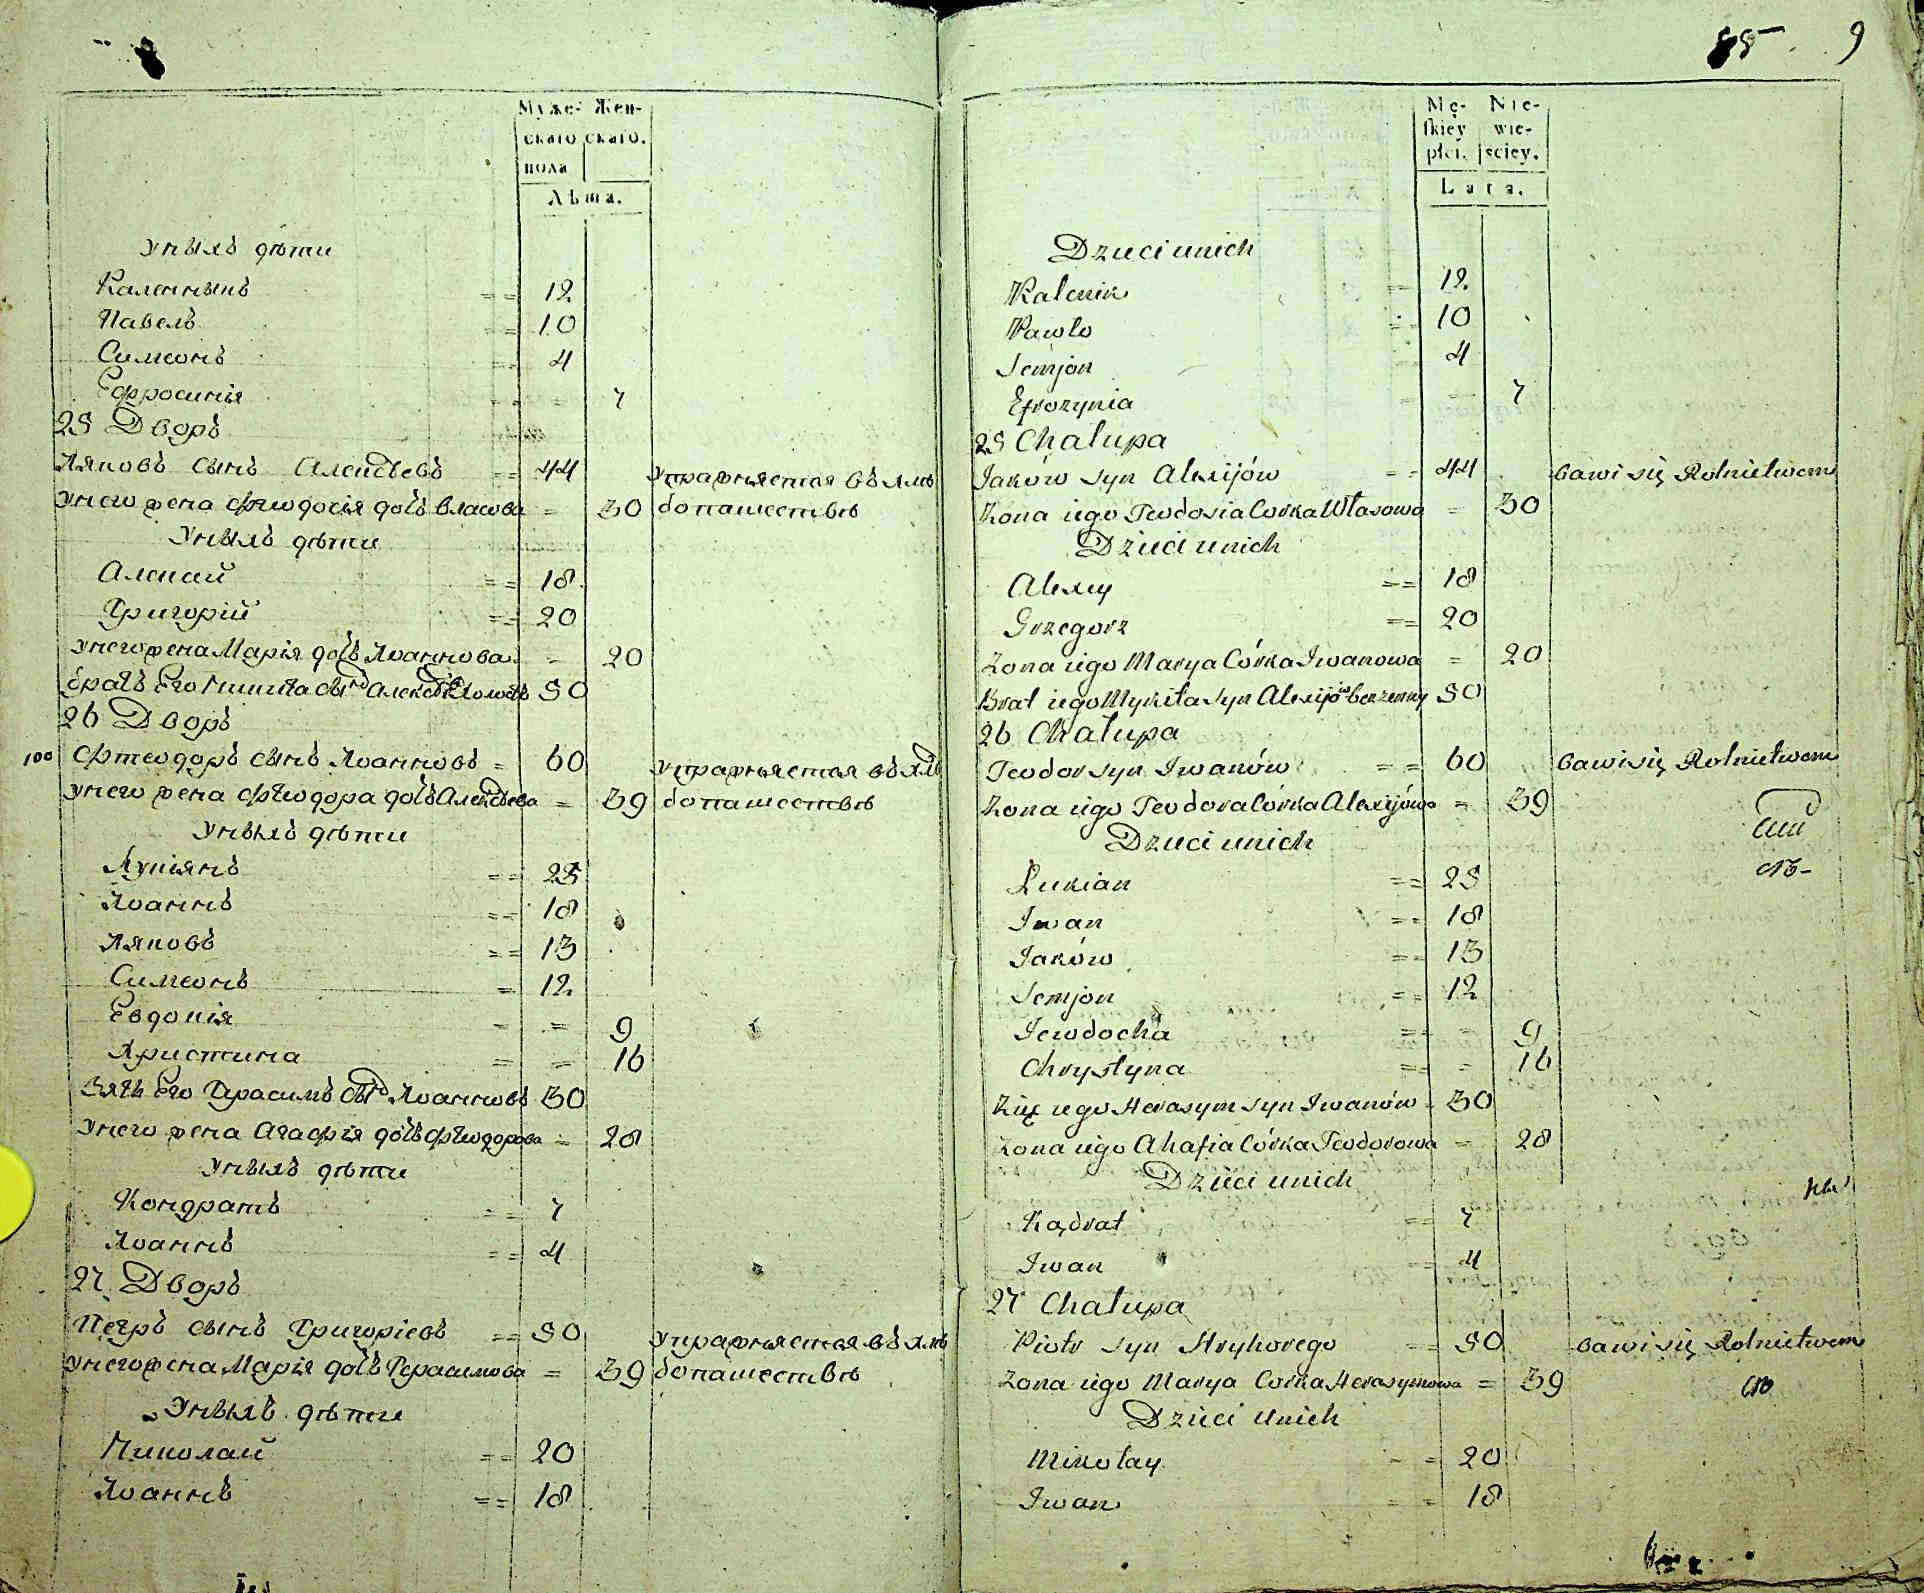 55 9
Муже- Жен-
скаго скаго.
пола
Лѣта.
У нихъ дѣти
Каленикъ == 12
Павелъ == 10
Симеонъ == 4
Ефросинія = = 7
25 Дворъ
Яковъ сынъ Алексѣевъ == 44 упражняется въ хлѣ
У него жена Феодосія дочь Власова = 30 бопашествѣ
У нихъ дѣти
Алексій == 18
Григорій == 20
У него жена Марія дочь Іоаннова = 20
братъ Его Никита сынъ Алексѣевъ холостъ 50
26 Дворъ
100 Феодоръ сынъ Іоанновъ = 60 упражняется въ хлѣ
У него жена Феодора дочь Алексѣева = 39 бопашествѣ
У нихъ дѣти
Лукіянъ == 25
Іоаннъ == 18
Яковъ == 13
Симеонъ = 12
Евдокія = = 9
Христина = = 16
Зять Его Герасимъ сынъ Іоанновъ 30
У него жена Агафія дочь Феодорова = 28
У нихъ дѣти
Кондратъ == 7
Іоаннъ == 4
27 Дворъ
Петръ сынъ Григоріевъ == 50 упражняется въ хлѣ
У него жена Марія дочь Герасимова = 39 бопашествѣ
У нихъ дѣти
Николай == 20
Іоаннъ == 18
Mę- Nie-
skiey wie-
płci. sciey.
Lata.
Dzieci u nich
Kalenik == 12
Pawło == 10
Semjon 4
Efrozynia = = 7
25 Chałupa
Jaków syn Alexijów == 44 bawi się Rolnictwem
Żona iego Teodosia Corka Własowa = 30
Dzieci u nich
Alexiy == 18
Grzegorz == 20
Zona iego Marya Córka Iwanowa = 20
Brat iego Mykita syn Alexijów bezzenny 50
26 Chałupa
Teodor syn Iwanów == 60 bawi się Rolnictwem
Zona iego Teodora Córka Alexijówa = 39
Dzieci u nich
Łukian == 25
Iwan == 18
Jaków == 13
Semjon == 12
Jewdocha = = 9
Chrystyna == = 16
Zięć iego Herasym syn Iwanów = 30
Zona iego Ahafia Córka Teodorowa = 28
Dzieci u nich
Kądrat == 7
Iwan == 4
27 Chałupa
Piotr syn Hryhorego == 50 bawi się Rolnictwem
Zona iego Marya Corka Herasymowa = 39
Dzieci u nich
Mikołay = = 20
Iwan = = 18